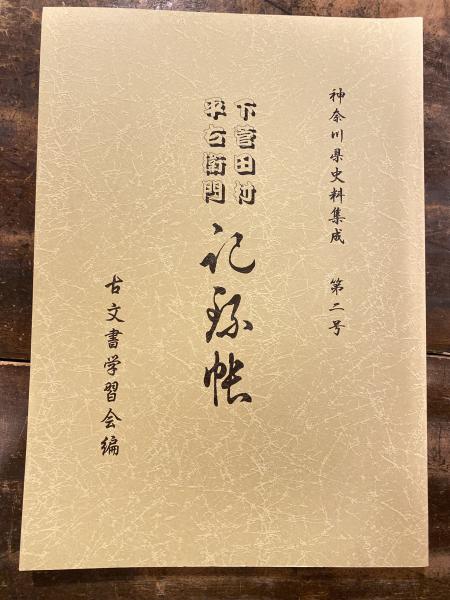 神奈川県史料集成 第二号
下菅田村
平右衛門
記録帳
古文書学習会編